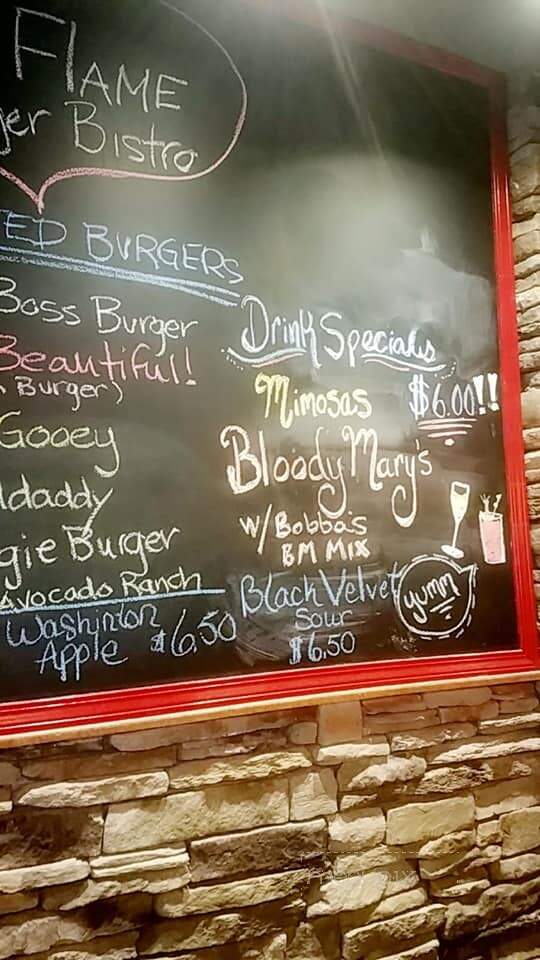 FLAME
Bistro
BURGERS
Boss Burger
Beautiful!
Burger)
Gooey
Burger
Avocado Ranch
Washinton
Apple $6.50
Drink Specials
Mimosas $6.00!!
Bloody Mary's
w/ Bobba's
BM MIX
Black Velvet
Sour
$6.50
yumm